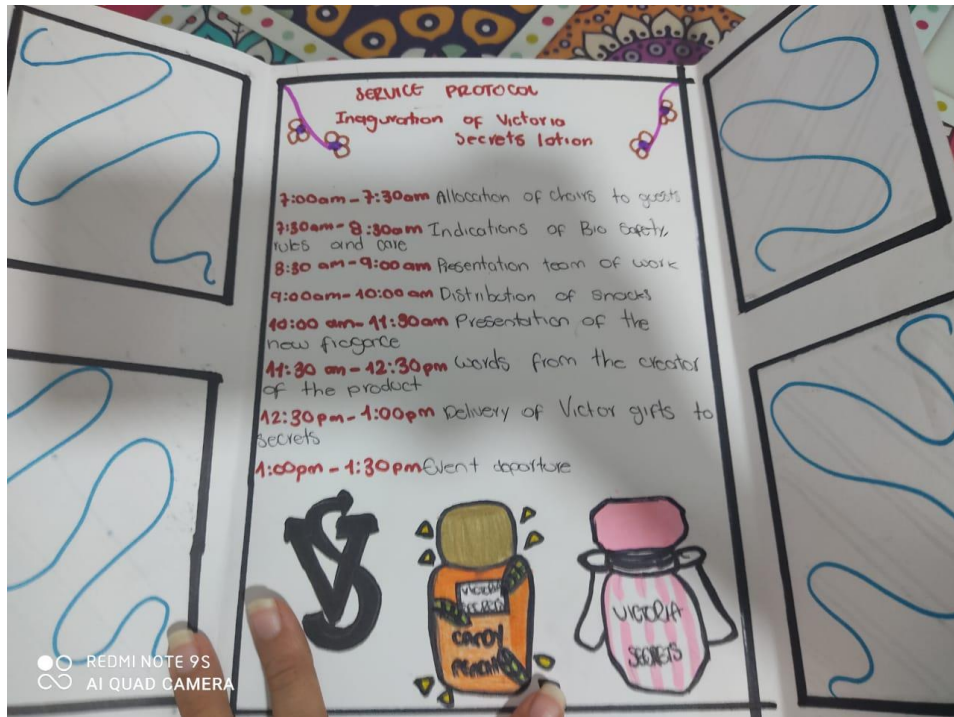 SERVICE PROTOCOL
Inaguration of Victoria
Secrets lotion
7:00am-7:30am Allocation of chairs to guests
7:30am-8:30am Indications of Bio Safety,
rules and care
8:30 am-9:00am Presentation team of work
9:00am-10:00am Distribution of snacks
10:00 am-11:30am Presentation of the
new fragance
11:30 am-12:30pm Words from the creator
of the product
12:30pm-1:00pm Delivery of Victor gifts to
secrets
1:00pm-1:30pm Event departure
VS
VICTORIA
SECRETS
CANDY
VICTORIA
SECRETS
REDMI NOTE 9S
AI QUAD CAMERA